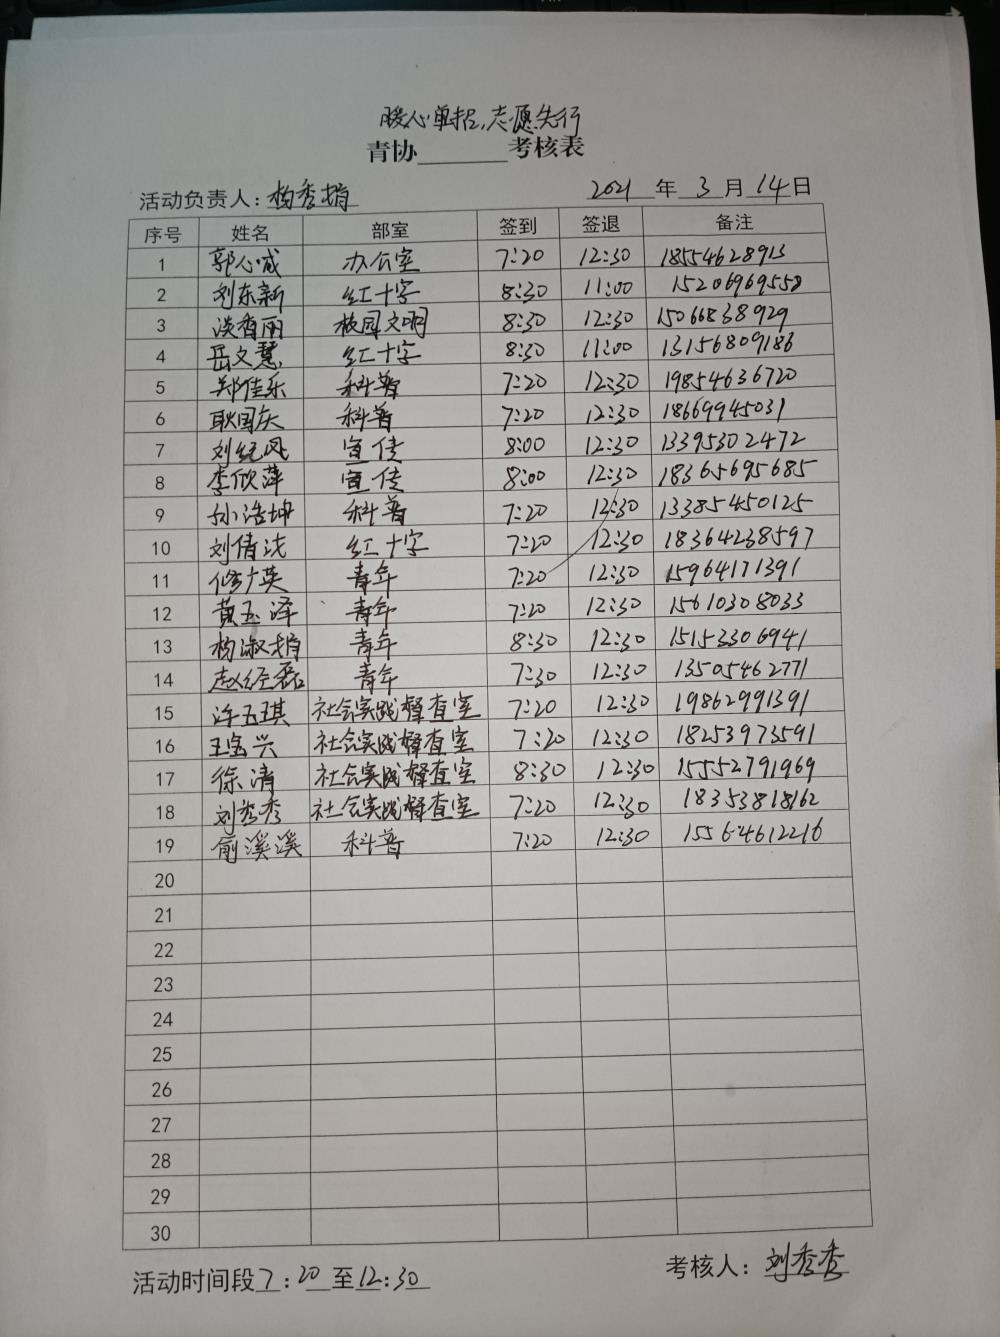 暖心单招,志愿先行
青协______考核表
活动负责人:杨秀娟 2021 年 3 月 14 日
序号 姓名 部室 签到 签退 备注
1 郭心咸 办公室 7:20 12:30 18554628913
2 刘东新 红十字 8:30 11:00 15206969558
3 淡香丽 校园文明 8:30 12:30 15066838929
4 岳文慧 红十字 8:30 11:00 13156809186
5 郑佳乐 科普 7:20 12:30 19854636720
6 耿国庆 科普 7:20 12:30 18669945031
7 刘纪凤 宣传 8:00 12:30 13395302472
8 李欣萍 宣传 8:00 12:30 18365695685
9 孙浩坤 科普 7:20 12:30 13385450125
10 刘倩 红十字 7:20 12:30 18364238597
11 修广英 青年 7:20 12:30 15964171391
12 黄玉泽 青年 7:20 12:30 15610308033
13 杨淑娟 青年 8:30 12:30 15153306941
14 赵经磊 青年 7:30 12:30 13505462771
15 许玉琪 社会实践督查室 7:20 12:30 19862991391
16 王宝兴 社会实践督查室 7:20 12:30 18253973591
17 徐清 社会实践督查室 8:30 12:30 15552791969
18 刘秀秀 社会实践督查室 7:20 12:30 18353818162
19 俞溪溪 科普 7:20 12:30 15564612216
20
21
22
23
24
25
26
27
28
29
30
活动时间段 7:20 至 12:30 考核人:刘秀秀